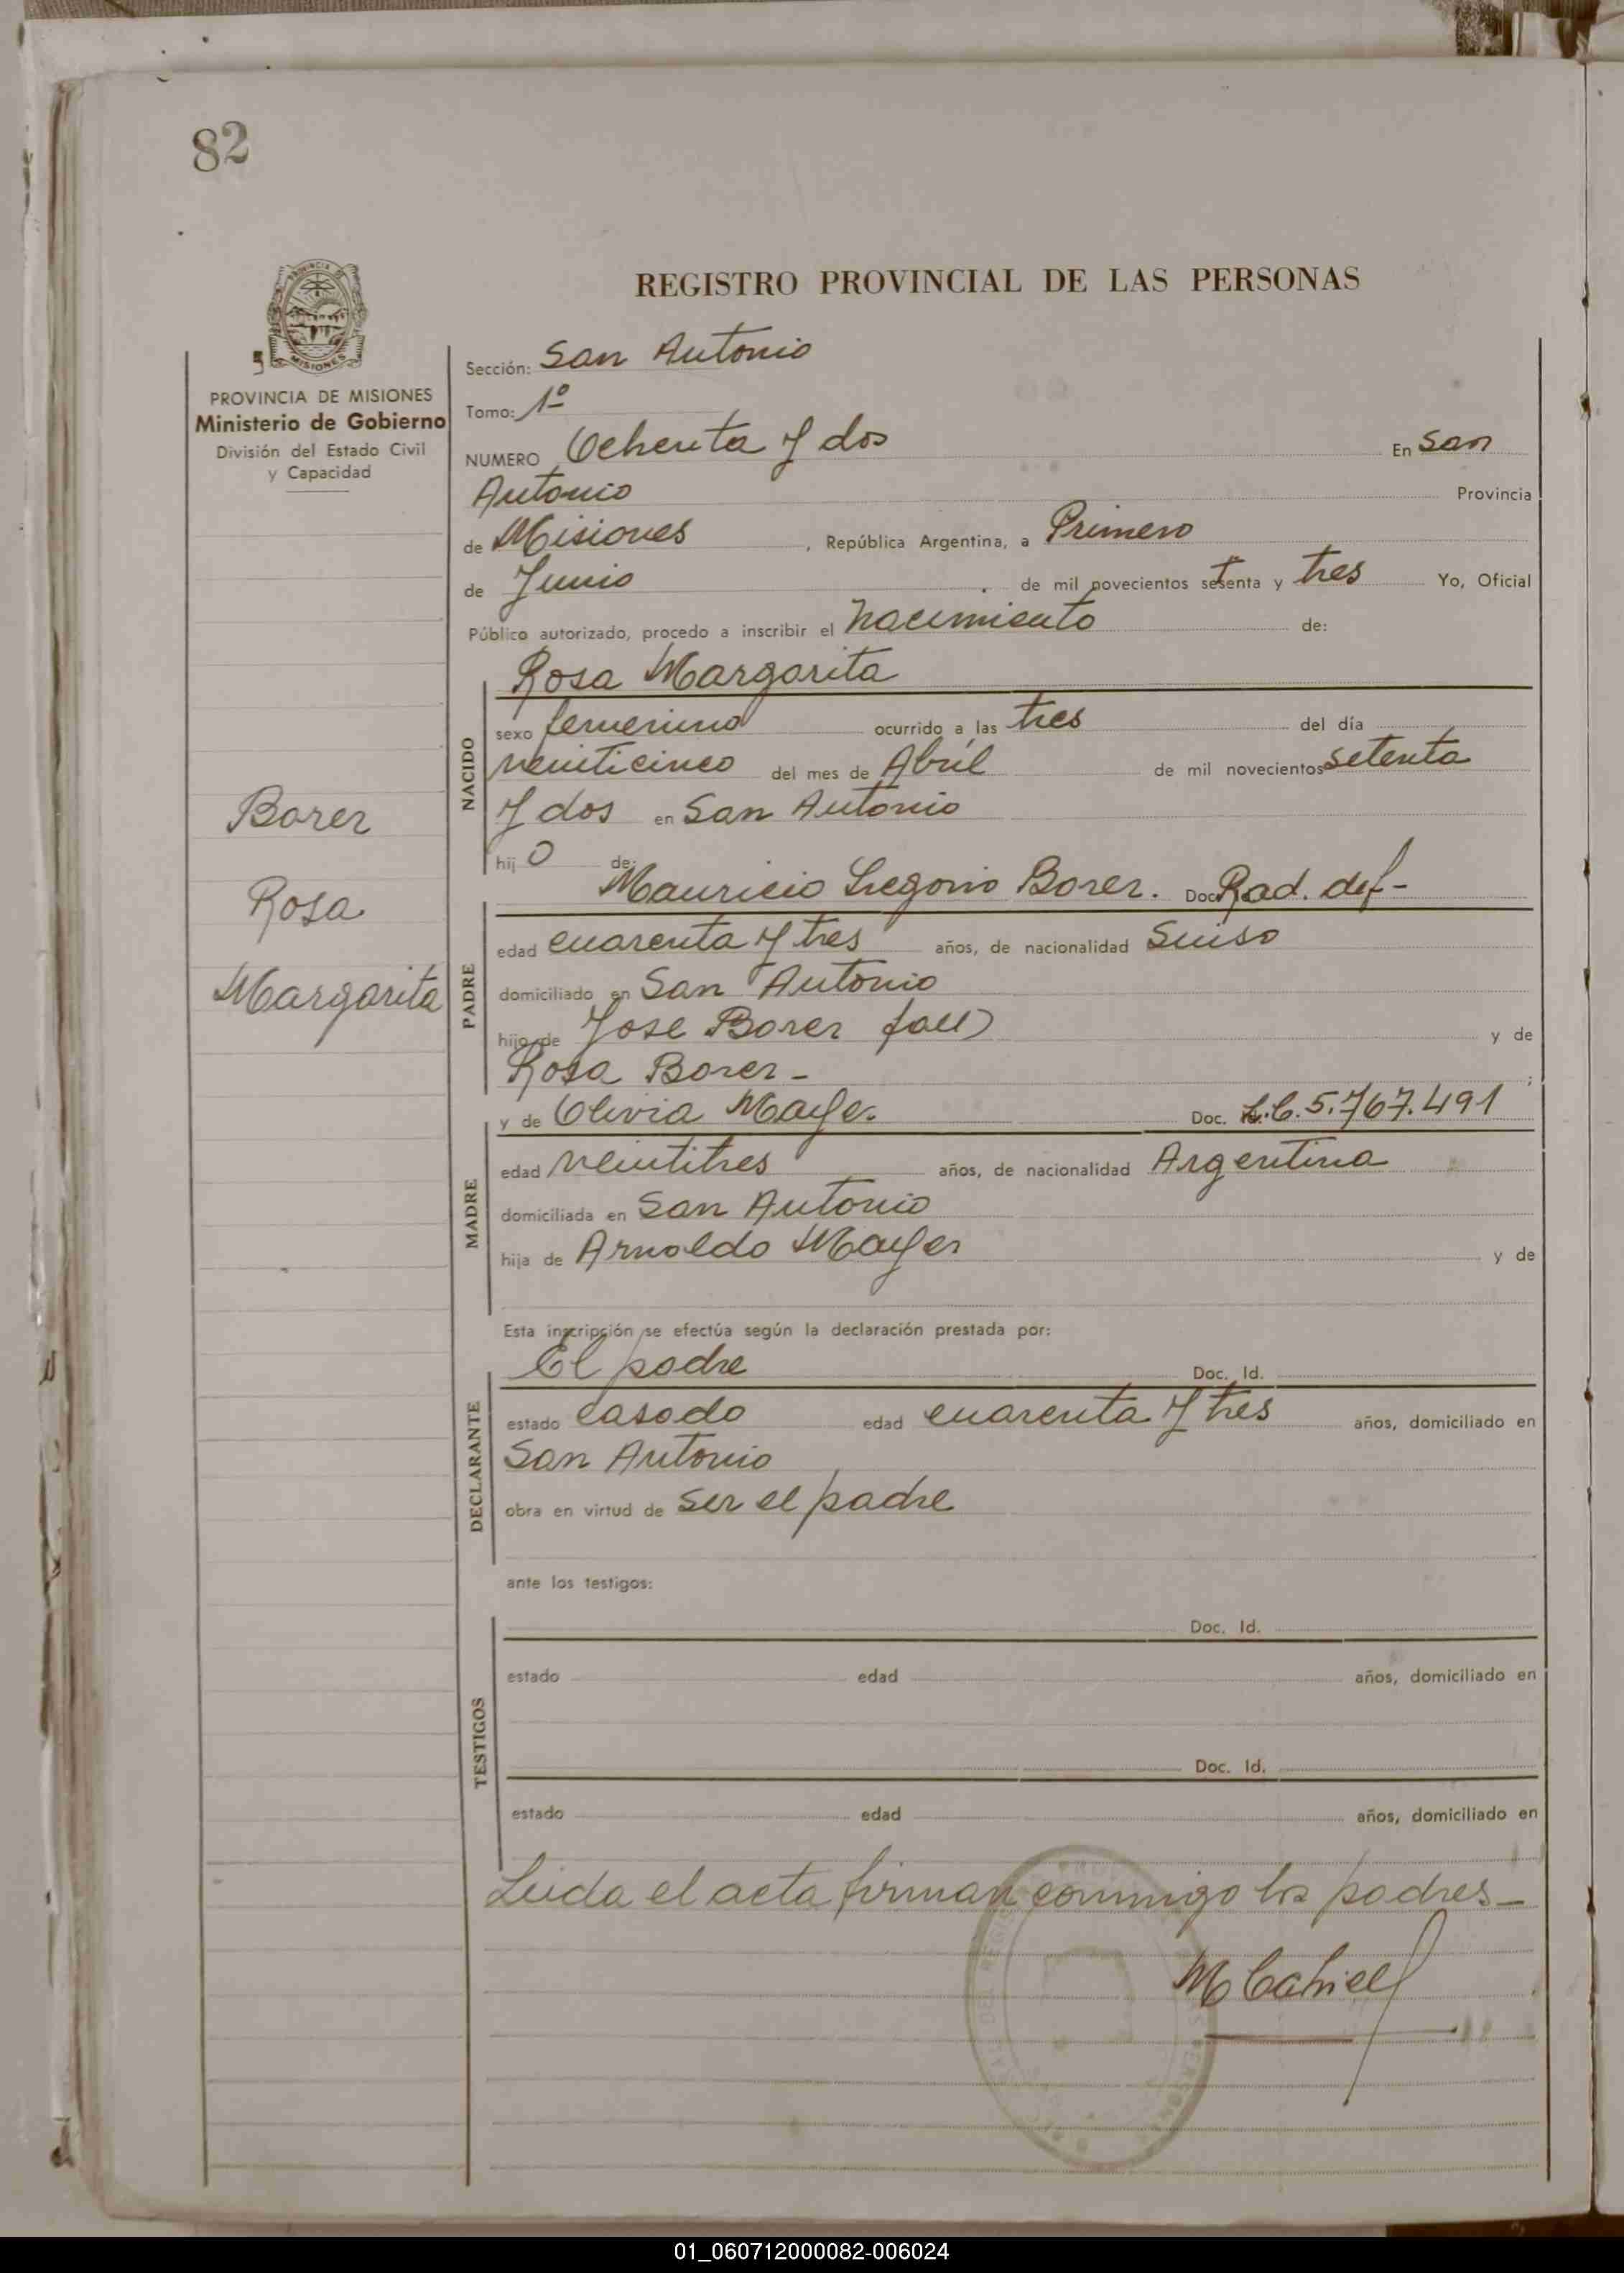 82
PROVINCIA DE MISIONES
Ministerio de Gobierno
División del Estado Civil
y Capacidad
Borer
Rosa
Margarita
REGISTRO PROVINCIAL DE LAS PERSONAS
Sección: San Antonio
Tomo: 1º
NUMERO Ochenta y dos En San
Antonio Provincia
de Misiones , República Argentina, a Primero
de Junio de mil novecientos setenta y tres Yo, Oficial
Público autorizado, procedo a inscribir el nacimiento de:
NACIDO
Rosa Margarita
sexo femenino ocurrido a las tres del día
veinticinco del mes de Abril de mil novecientos setenta
y dos en San Antonio
hij o de:
PADRE
Mauricio Gregorio Borer. Doc. Rad. def-
edad cuarenta y tres años, de nacionalidad Suiso
domiciliado en San Antonio
hijo de Jose Borer fall) y de
Rosa Borer - ;
MADRE
y de Olivia Mayer Doc. L.C. 5.767.491
edad veintitres años, de nacionalidad Argentina
domiciliada en San Antonio
hija de Arnoldo Mayer y de
Esta inscripción se efectúa según la declaración prestada por:
DECLARANTE
El padre Doc. Id.
estado casado edad cuarenta y tres años, domiciliado en
San Antonio
obra en virtud de ser el padre
ante los testigos:
TESTIGOS
Doc. Id.
estado edad años, domiciliado en
Doc. Id.
estado edad años, domiciliado en
Leida el acta firman conmigo los padres-
01_060712000082-006024